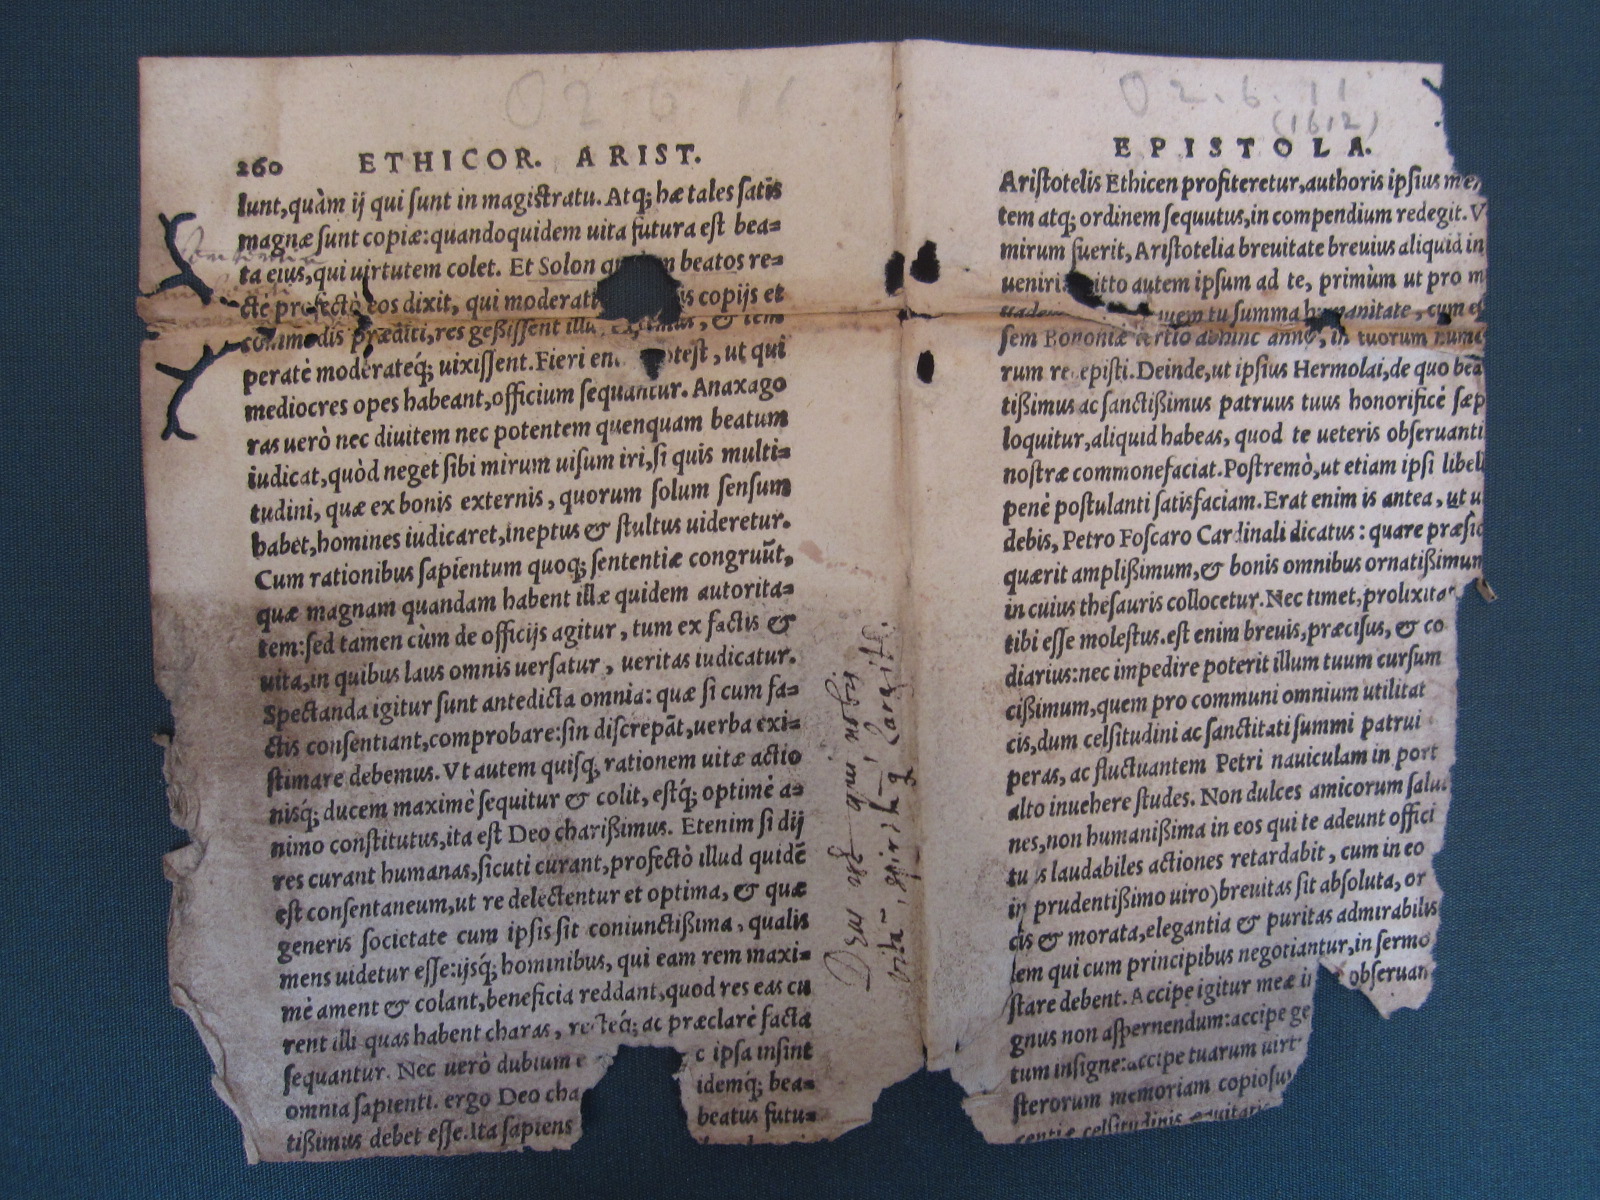 02 6 11
260 ETHICOR. ARIST.
lunt,quàm ij qui ſunt in magiſtratu. Atq; hæ tales ſatis
magnæ ſunt copiæ:quandoquidem uita futura eſt bea-
ta eius,qui uirtutem colet. Et Solon beatos re-
ctè profectò eos dixit, qui moderati is copijs et
commodis præditi,res geßiſſent & tem
peratè moderateq́; uixiſſent. Fieri en poteſt, ut qui
mediocres opes habeant,officium ſequantur. Anaxago
ras uerò nec diuitem nec potentem quenquam beatum
iudicat,quòd neget ſibi mirum uiſum iri,ſi quis multi-
tudini, quæ ex bonis externis, quorum ſolum ſenſum
habet,homines iudicaret,ineptus & ſtultus uideretur.
Cum rationibus ſapientum quoq; ſententiæ congruūt,
quæ magnam quandam habent illæ quidem autorita-
tem:ſed tamen cùm de officijs agitur, tum ex factis &
uita,in quibus laus omnis uerſatur, ueritas iudicatur.
Spectanda igitur ſunt antedicta omnia: quæ ſi cum fa-
ctis conſentiant,comprobare:ſin diſcrepāt,uerba exi-
ſtimare debemus. Vt autem quiſq; rationem uitæ actio
nisq́; ducem maximè ſequitur & colit, eſtq́; optimè a-
nimo conſtitutus,ita eſt Deo charißimus. Etenim ſi dij
res curant humanas,ſicuti curant,profectò illud quidē
eſt conſentaneum,ut re delectentur et optima, & quæ
generis ſocietate cum ipſis ſit coniunctißima, qualis
mens uidetur eſſe:ijsq́; hominibus, qui eam rem maxi-
mè ament & colant,beneficia reddant,quod res eas cu
rent illi quas habent charas, recteq́; ac præclarè facta
ſequantur. Nec uerò dubium e c ipſa inſint
omnia ſapienti. ergo Deo cha idemq́; bea-
tißimus debet eſſe. Ita ſapiens beatus futu-
Deus qui nobis
02.6.11
(1612)
EPISTOLA.
Ariſtotelis Ethicen profiteretur,authoris ipſius men
tem atq; ordinem ſequutus,in compendium redegit. V
mirum fuerit, Ariſtotelia breuitate breuius aliquid in
ueniri itto autem ipſum ad te, primùm ut pro m
uem tu ſumma humanitate, cum eſ
ſem Bononiæ tertio abhinc anno, in tuorum nume
rum recepiſti. Deinde,ut ipſius Hermolai,de quo bea
tißimus ac ſanctißimus patruus tuus honorificè ſæp
loquitur,aliquid habeas, quod te ueteris obſeruanti
noſtræ commonefaciat. Poſtremò,ut etiam ipſi libell
penè poſtulanti ſatisfaciam. Erat enim is antea, ut u
debis, Petro Foſcaro Cardinali dicatus: quare præſid
quærit amplißimum,& bonis omnibus ornatißimum
in cuius theſauris collocetur. Nec timet,prolixitat
tibi eſſe moleſtus.eſt enim breuis,præciſus, & co
diarius:nec impedire poterit illum tuum curſum
cißimum,quem pro communi omnium utilitat
cis,dum celſitudini ac ſanctitati ſummi patrui
peras, ac fluctuantem Petri nauiculam in port
alto inuehere ſtudes. Non dulces amicorum ſalut
nes,non humanißima in eos qui te adeunt offici
tu is laudabiles actiones retardabit, cum in eo
in prudentißimo uiro)breuitas ſit abſoluta, or
cis & morata,elegantia & puritas admirabilis
lem qui cum principibus negotiantur,in ſermo
ſtare debent. Accipe igitur meæ i obſeruan
gnus non aſpernendum:accipe ge
tum inſigne:accipe tuarum uirt
ſterorum memoriam copioſu
celſitudinis